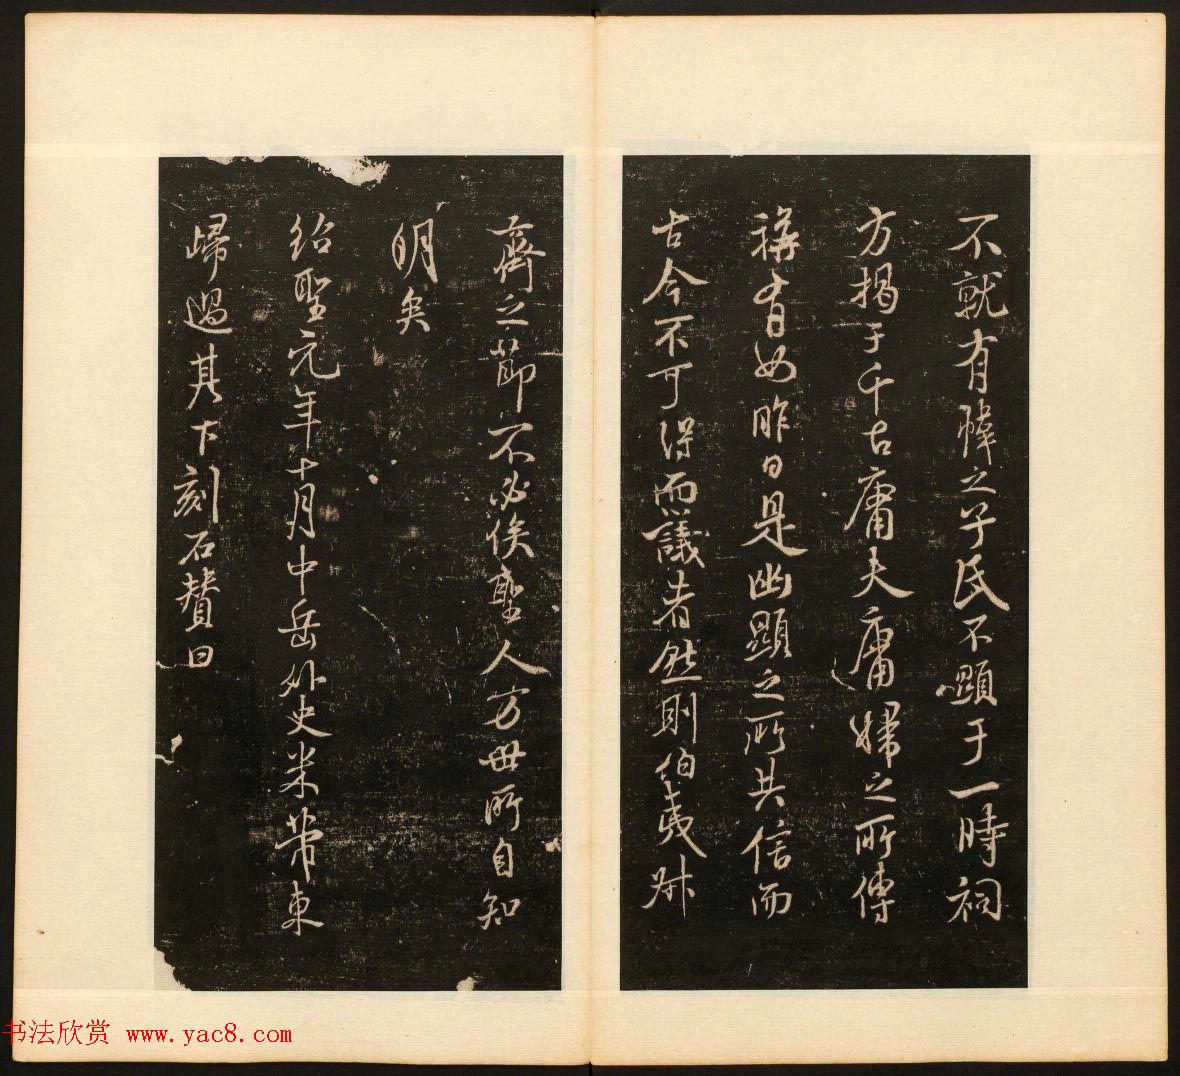 不就有幃之子氏不顯于一時祠
方揭于千古庸夫庸婦之所傳
稱有如昨日是幽顯之所共信而
古今不可得而議者然則伯夷叔
齊之節不必俟聖人方毋所自知
明矣
紹聖元年十月中岳外史米芾東
歸過其下刻石贊曰
书法欣赏 www.yac8.com